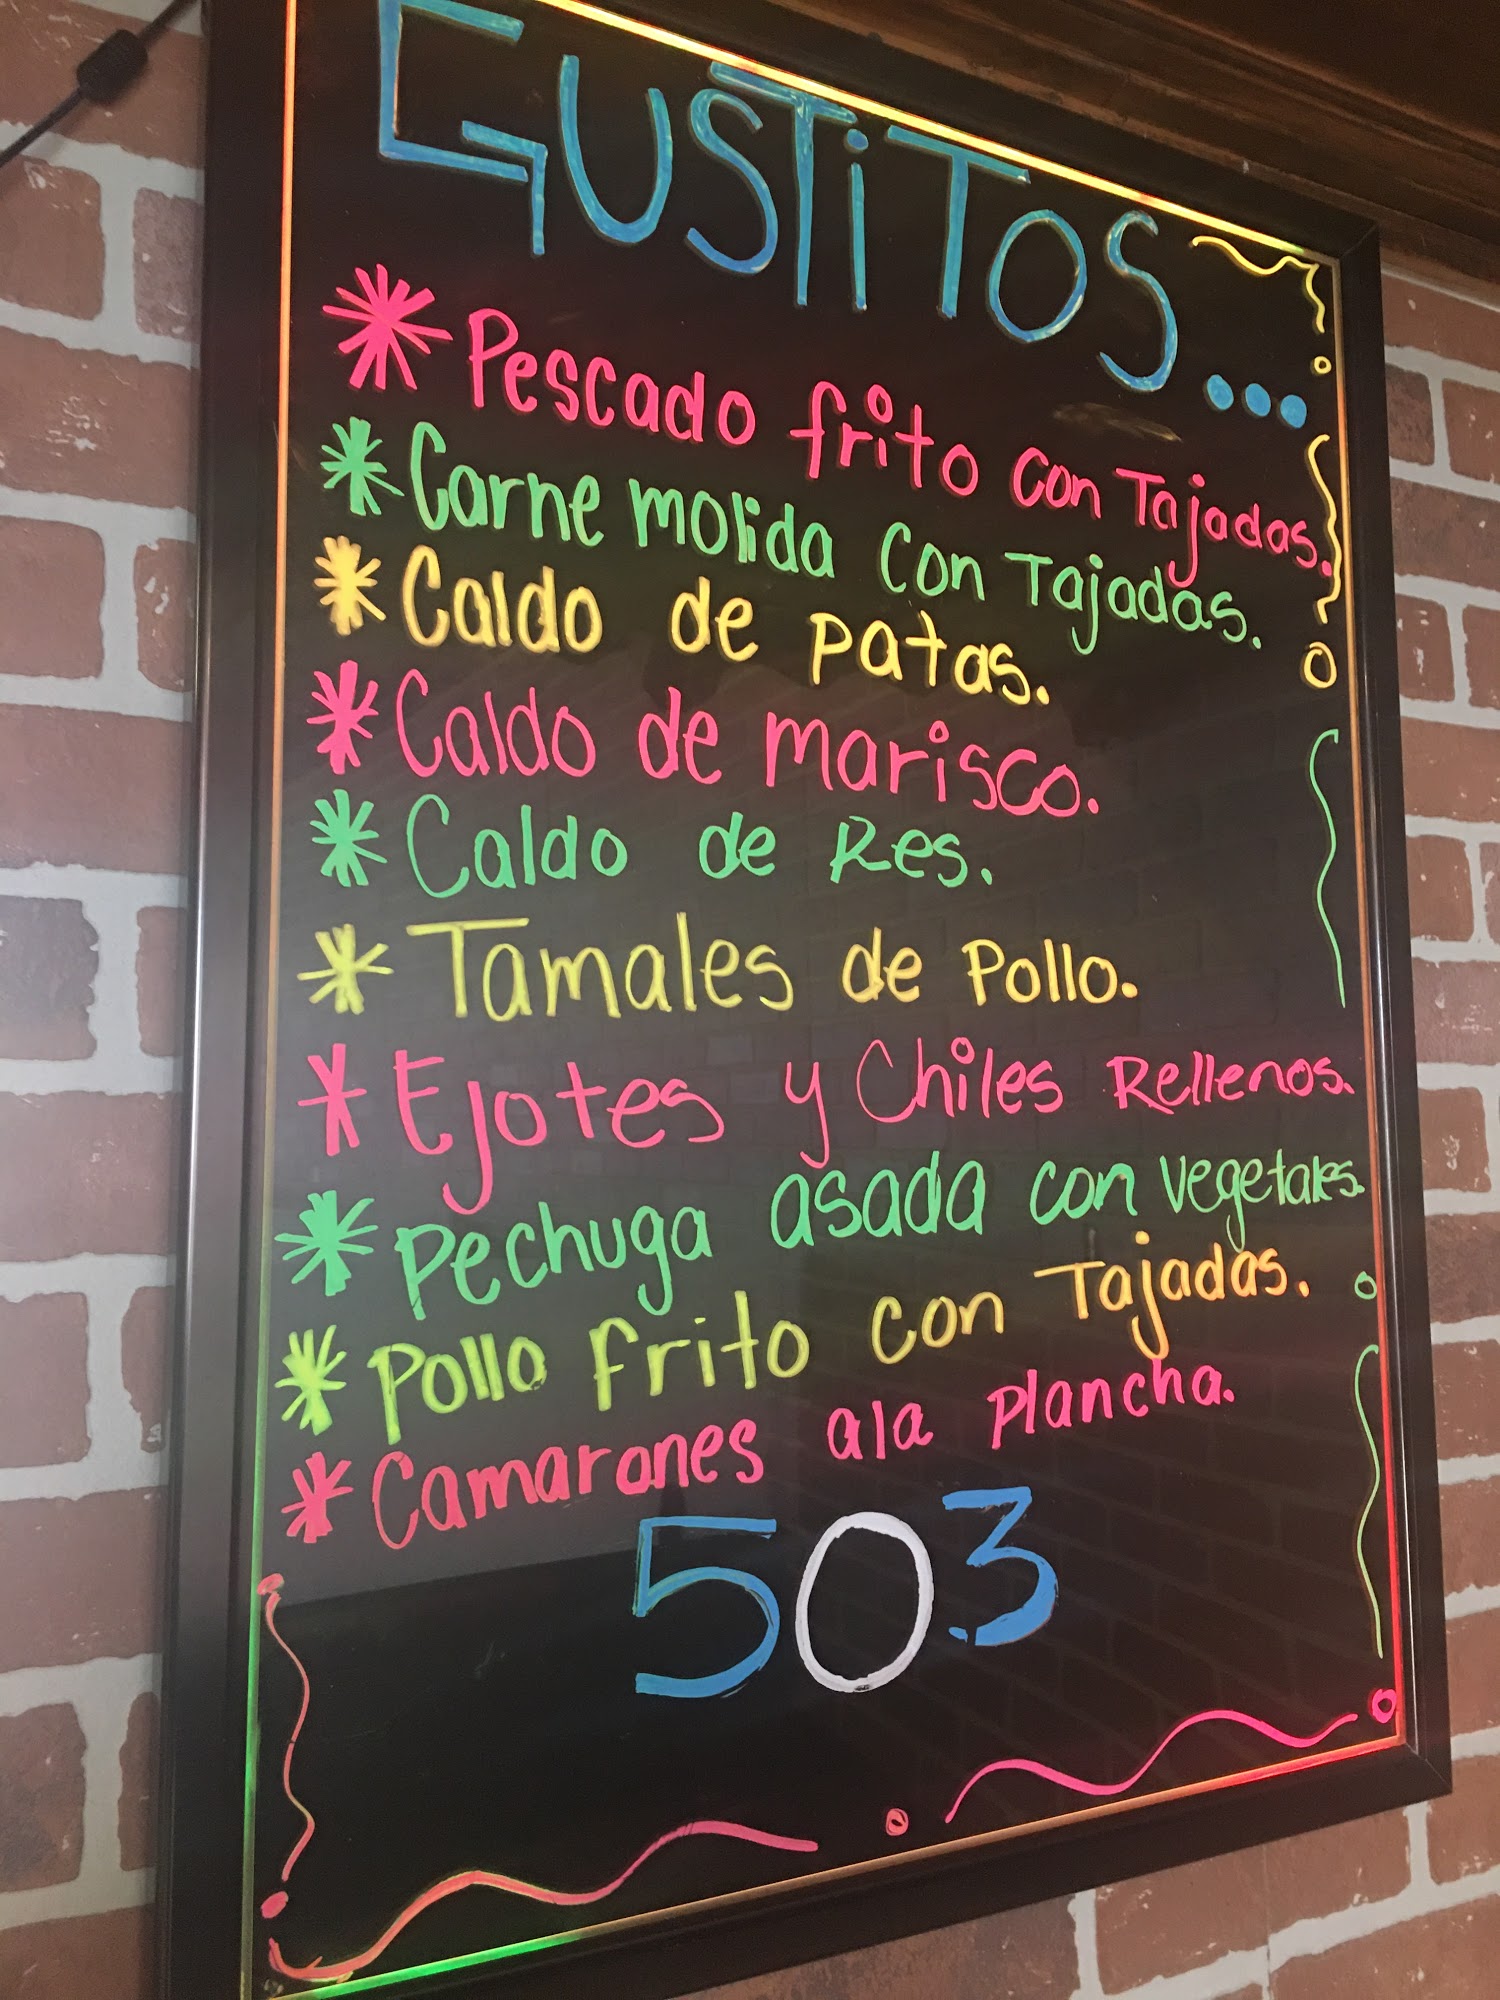 GUSTiTOS...
* Pescado frito con Tajadas.
* Carne molida con Tajadas.
* Caldo de patas.
* Caldo de marisco.
* Caldo de Res.
* Tamales de Pollo.
* Ejotes y Chiles Rellenos.
* Pechuga asada con vegetales.
* Pollo frito con Tajadas.
* Camarones ala Plancha.
503